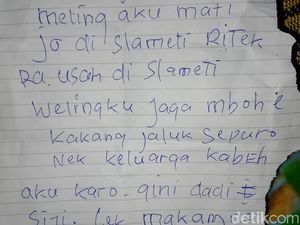 meling aku mati
jo di slameti RiTEK
RA. usah di slameti
welingku jaga mboh e
kakang jaluk sepuro
NEK keluarga kabEh
aku karo. gini dadi
siji. lek makam
detikcom